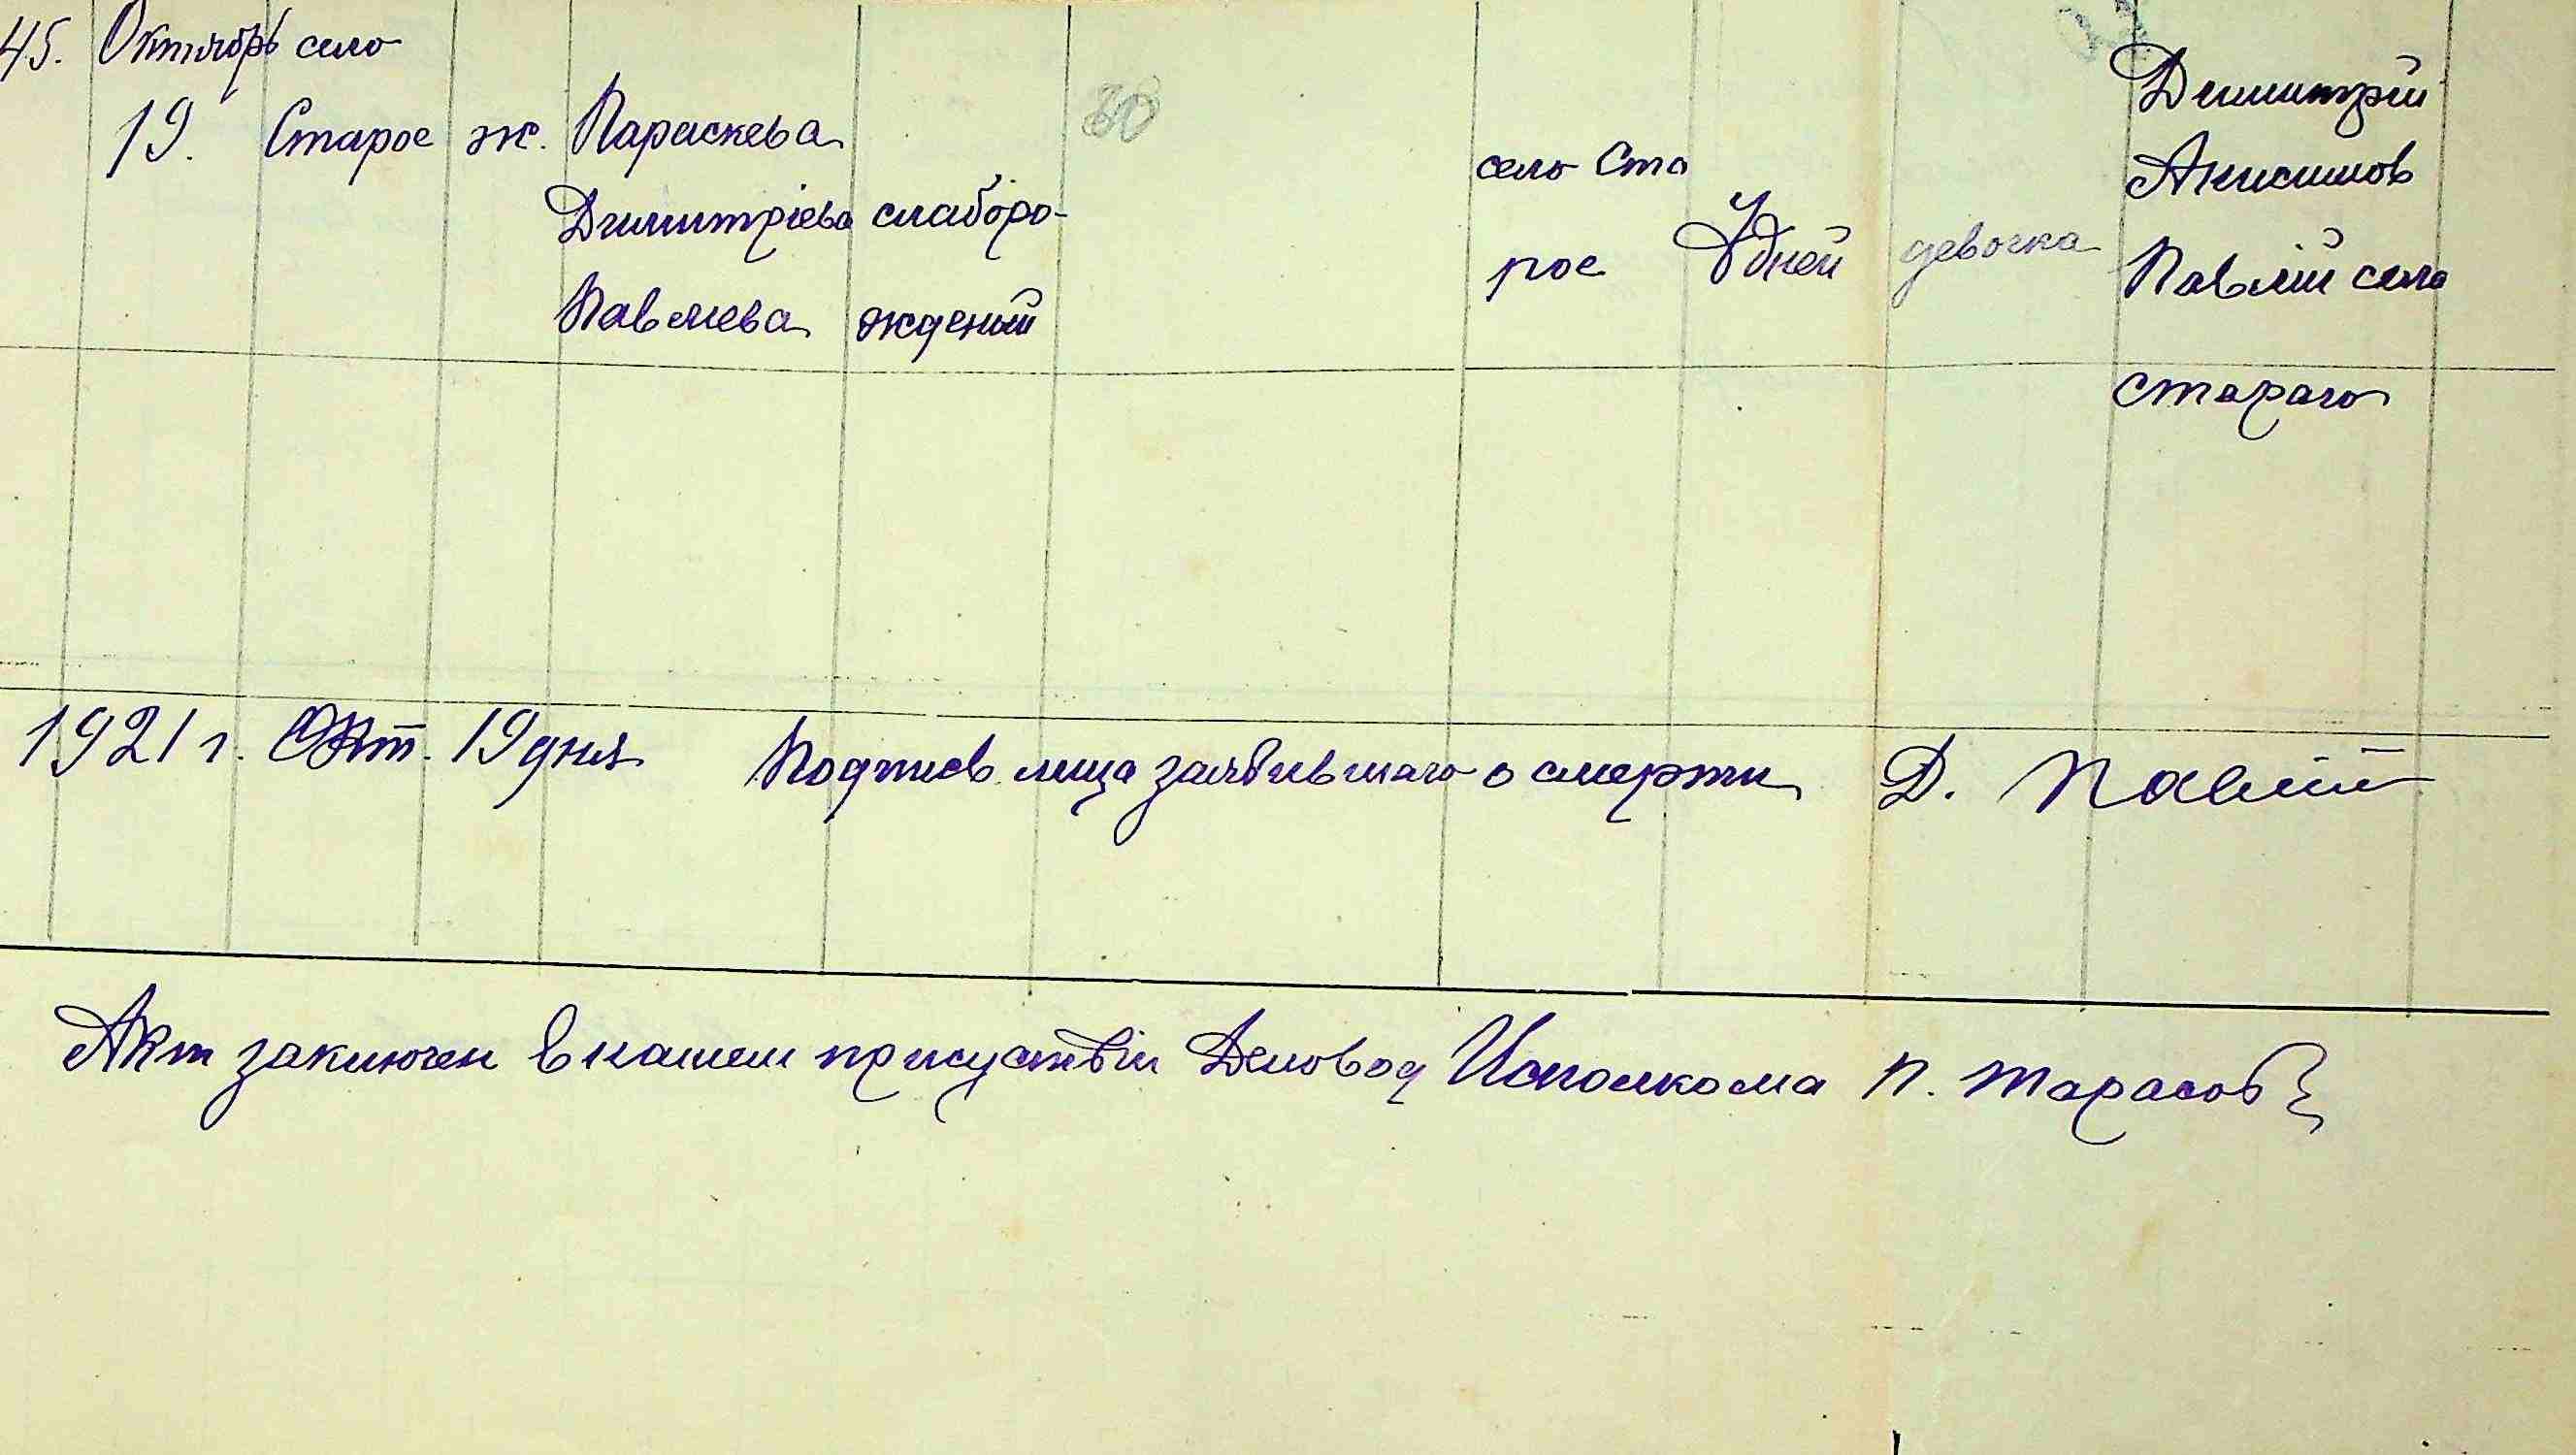 45. Октябрь село
19. Старое ж. Параскева
Димитріева слаборо-
Павлиева жденый
80
село Ста
рое дней девочка
Димитрій
Анисимов
Павлій села
стараго
1921 г. Окт. 19 дня Подпись лица заявившаго о смерти Д. Павлій
Акт заключен в нашем присуствіи Деловод Исполкома П. Тарасов